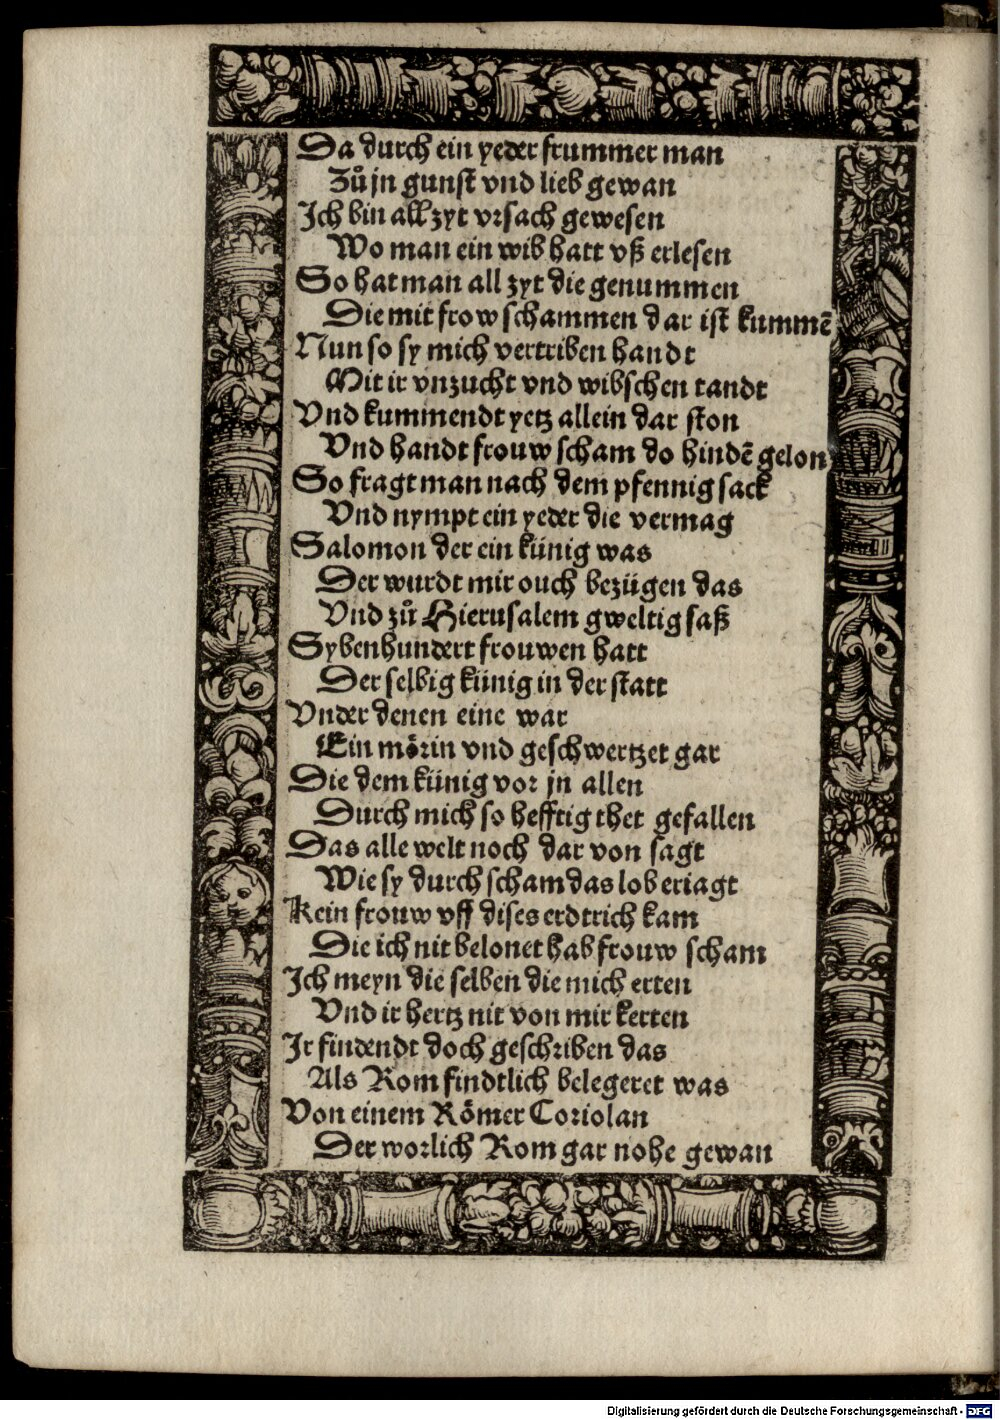 Da durch ein yeder frummer man
Zů jn gunst vnd lieb gewan
Ich bin all zyt vrsach gewesen
Wo man ein wib hatt vß erlesen
So hat man all zyt die genummen
Die mit frow schammen dar ist kummē
Nun so sy mich vertriben handt
Mit ir vnzucht vnd wibschen tandt
Vnd kummendt yetz allein dar ston
Vnd handt frouw scham do hindē gelon
So fragt man nach dem pfennig sack
Vnd nympt ein yeder die vermag
Salomon der ein künig was
Der wurdt mir ouch bezügen das
Vnd zů Hierusalem gweltig saß
Sybenhundert frouwen hatt
Der selbig künig in der statt
Vnder denen eine war
Ein mörin vnd geschwertzet gar
Die dem künig vor jn allen
Durch mich so hefftig thet gefallen
Das alle welt noch dar von sagt
Wie sy durch scham das lob eriagt
Kein frouw vff dises erdtrich kam
Die ich nit belonet hab frouw scham
Ich meyn die selben die mich erten
Vnd ir hertz nit von mir kerten
Ir findendt doch geschriben das
Als Rom findtlich belegeret was
Von einem Römer Coriolan
Der worlich Rom gar nohe gewan
Digitalisierung gefördert durch die Deutsche Forschungsgemeinschaft - DFG